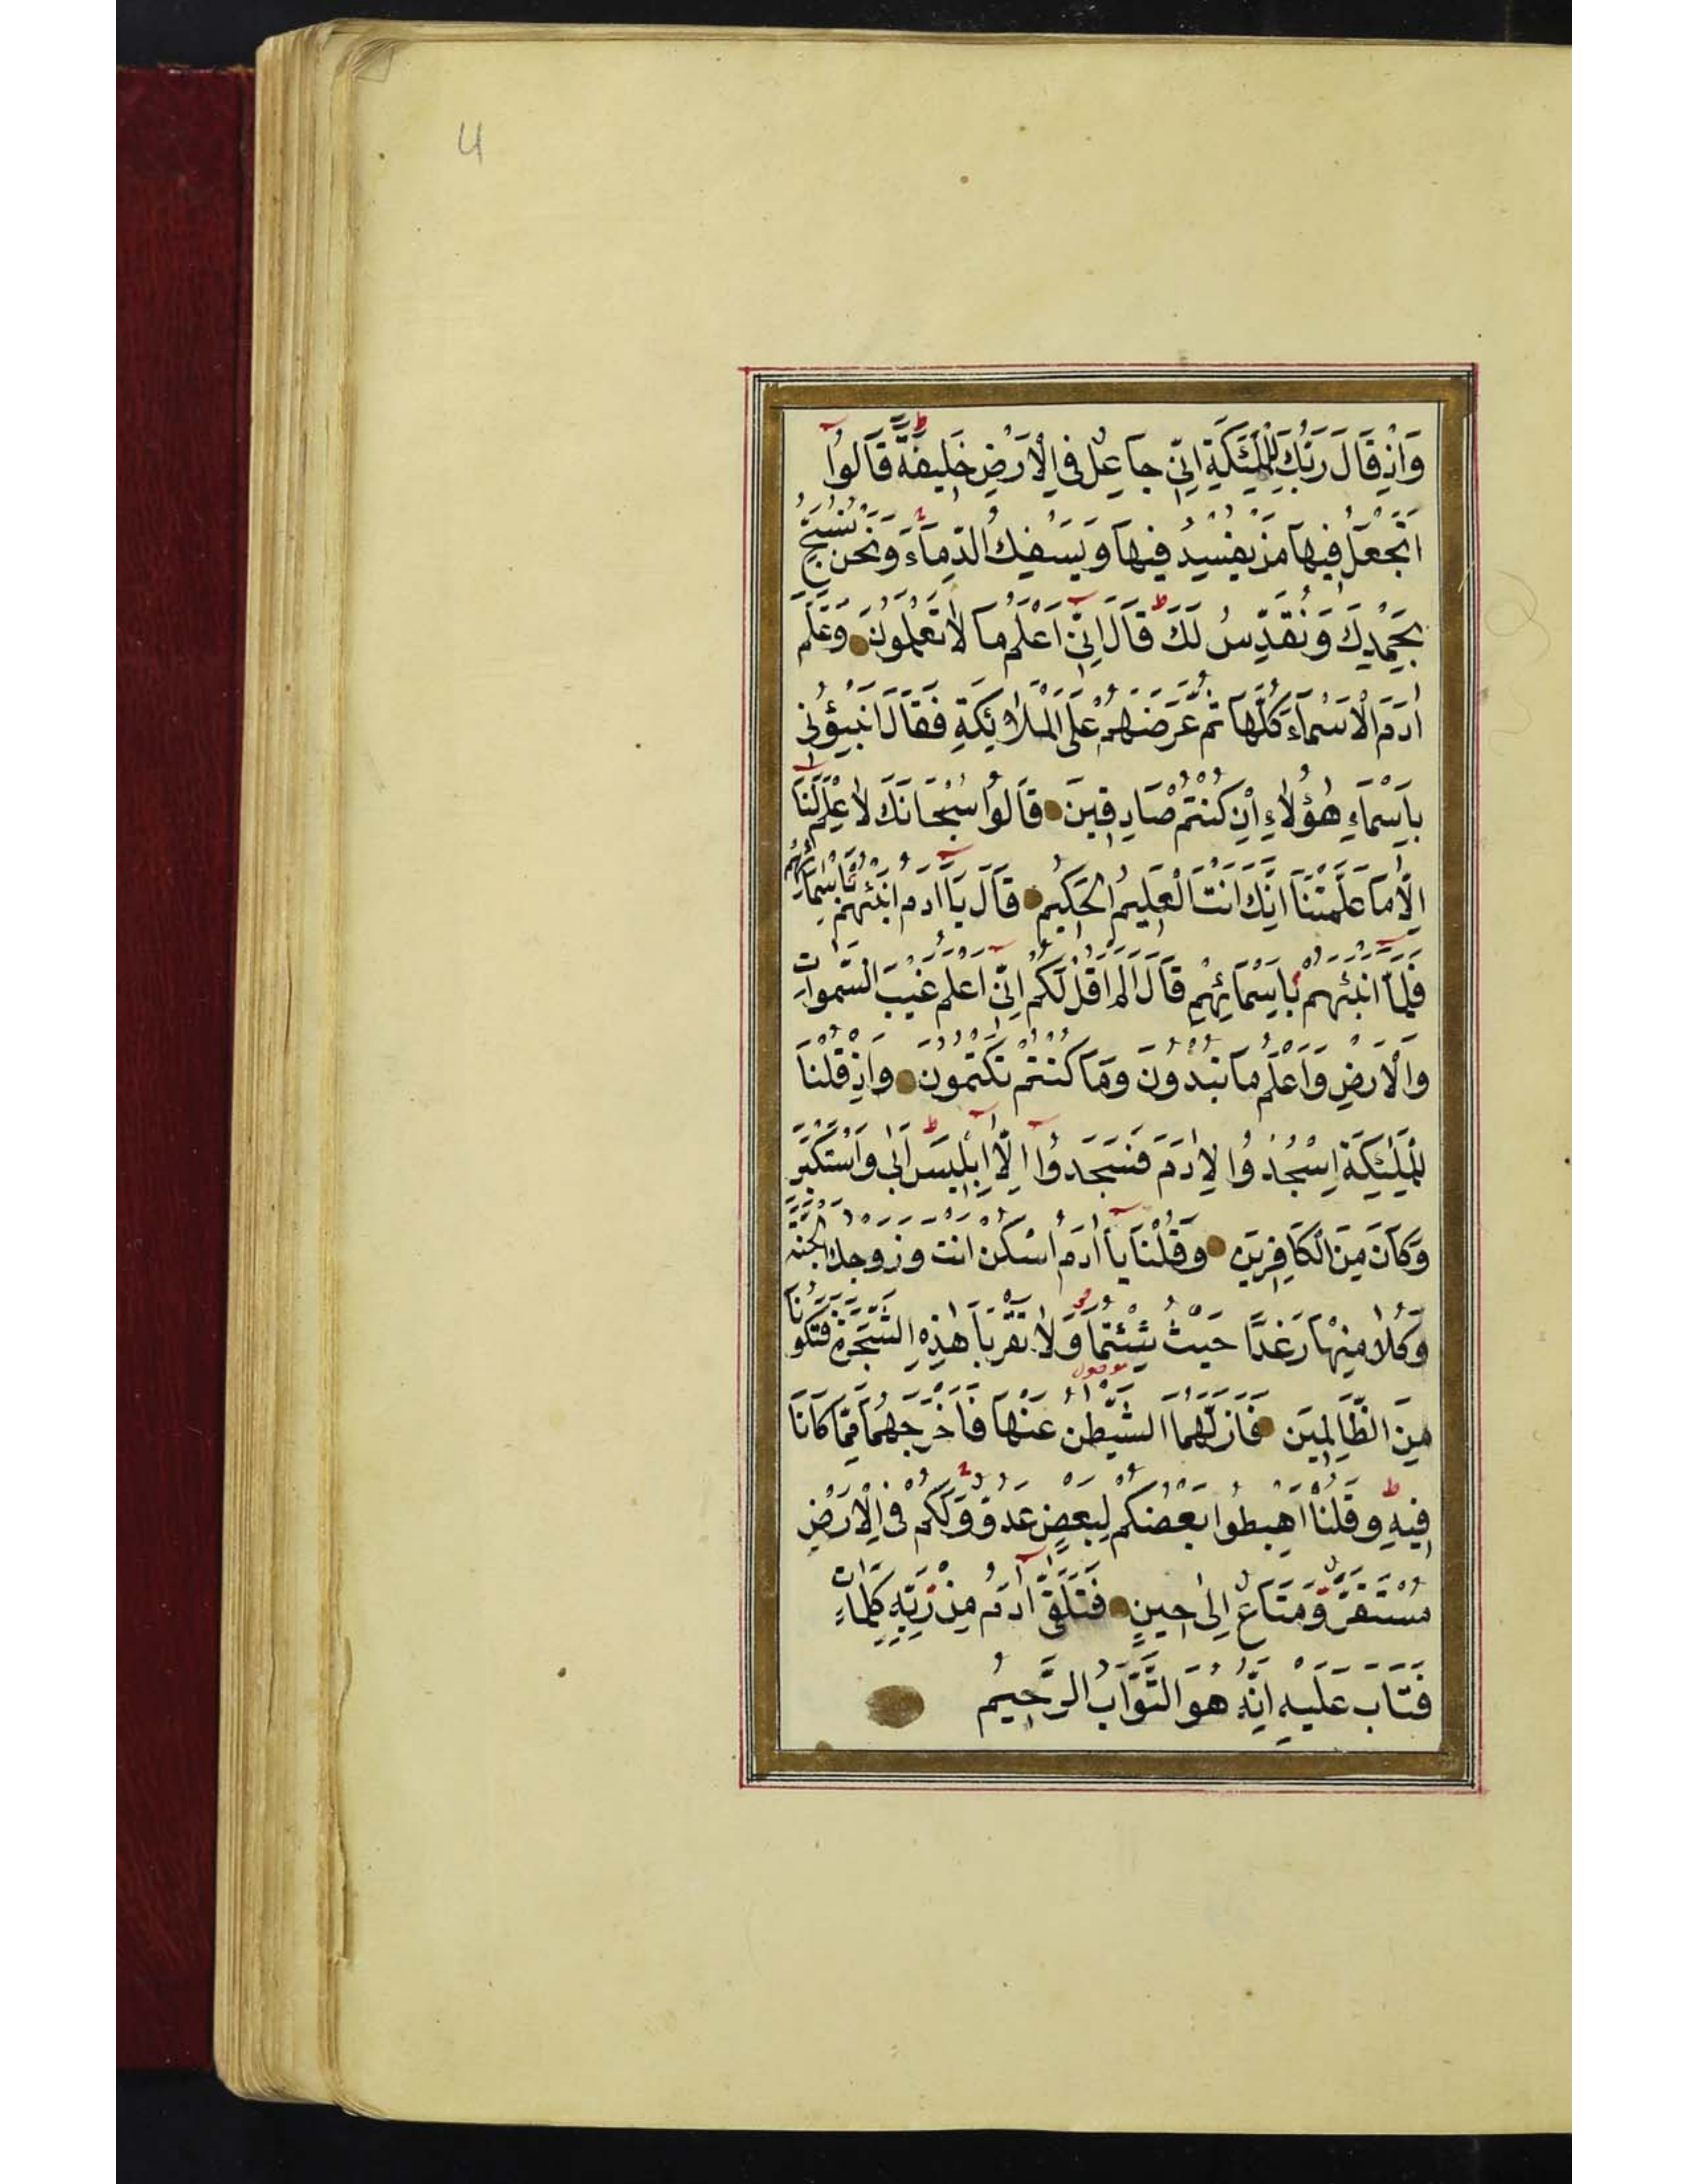 4
وَاِذْ قَالَ رَبُّكَ لِلْمَلٰٓئِكَةِ اِنّٖي جَاعِلٌ فِي الْاَرْضِ خَلٖيفَةً قَالُٓوا
اَتَجْعَلُ فٖيهَا مَنْ يُفْسِدُ فٖيهَا وَيَسْفِكُ الدِّمَآءَ وَنَحْنُ نُسَبِّحُ
بِحَمْدِكَ وَنُقَدِّسُ لَكَ قَالَ اِنّٖٓي اَعْلَمُ مَا لَا تَعْلَمُونَ وَعَلَّمَ
اٰدَمَ الْاَسْمَآءَ كُلَّهَا ثُمَّ عَرَضَهُمْ عَلَى الْمَلَائِكَةِ فَقَالَ اَنْبِؤُنٖي
بِاَسْمَآءِ هٰٓؤُلَاءِ اِنْ كُنْتُمْ صَادِقٖينَ قَالُوا سُبْحَانَكَ لَا عِلْمَ لَنَٓا
اِلَّا مَا عَلَّمْتَنَا اِنَّكَ اَنْتَ الْعَلٖيمُ الْحَكٖيمُ قَالَ يَٓا اٰدَمُ اَنْبِئْهُمْ بِاَسْمَائِهِمْ
فَلَمَّٓا اَنْبَئَهُمْ بِاَسْمَائِهِمْ قَالَ اَلَمْ اَقُلْ لَكُمْ اِنّٖٓي اَعْلَمُ غَيْبَ السَّمٰوَاتِ
وَالْاَرْضِ وَاَعْلَمُ مَا تُبْدُونَ وَمَا كُنْتُمْ تَكْتُمُونَ وَاِذْ قُلْنَا
لِلْمَلٰئِكَةِ اسْجُدُوا لِاٰدَمَ فَسَجَدُٓوا اِلَّٓا اِبْلٖيسَ اَبٰى وَاسْتَكْبَرَ
وَكَانَ مِنَ الْكَافِرٖينَ وَقُلْنَا يَٓا اٰدَمُ اسْكُنْ اَنْتَ وَزَوْجُكَ الْجَنَّةَ
وَكُلَا مِنْهَا رَغَدًا حَيْثُ شِئْتُمَا وَلَا تَقْرَبَا هٰذِهِ الشَّجَرَةَ فَتَكُونَا
مِنَ الظَّالِمٖينَ فَاَزَلَّهُمَا الشَّيْطٰنُ عَنْهَا فَاَخْرَجَهُمَا مِمَّا كَانَا
فٖيهِ وَقُلْنَا اهْبِطُوا بَعْضُكُمْ لِبَعْضٍ عَدُوٌّ وَلَكُمْ فِي الْاَرْضِ
مُسْتَقَرٌّ وَمَتَاعٌ اِلٰى حٖينٍ فَتَلَقّٰٓى اٰدَمُ مِنْ رَبِّهٖ كَلِمَاتٍ
فَتَابَ عَلَيْهِ اِنَّهُ هُوَ التَّوَّابُ الرَّحٖيمُ